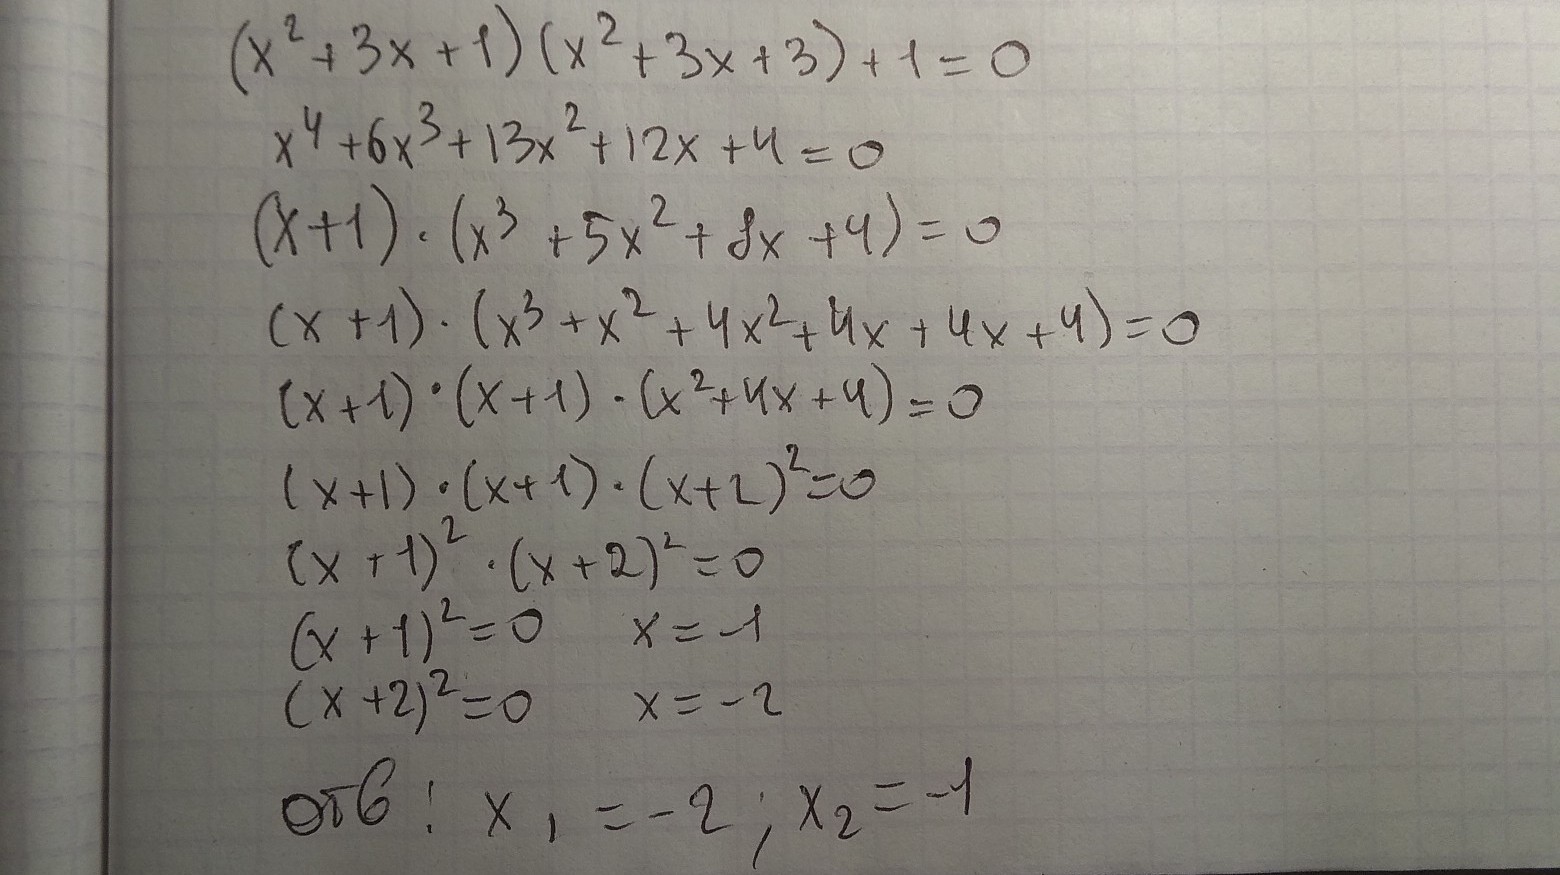 (x²+3x+1)(x²+3x+3)+1=0
x⁴+6x³+13x²+12x+4=0
(x+1)·(x³+5x²+8x+4)=0
(x+1)·(x³+x²+4x²+4x+4x+4)=0
(x+1)·(x+1)·(x²+4x+4)=0
(x+1)·(x+1)·(x+2)²=0
(x+1)²·(x+2)²=0
(x+1)²=0 x=-1
(x+2)²=0 x=-2
отв: x₁=-2; x₂=-1